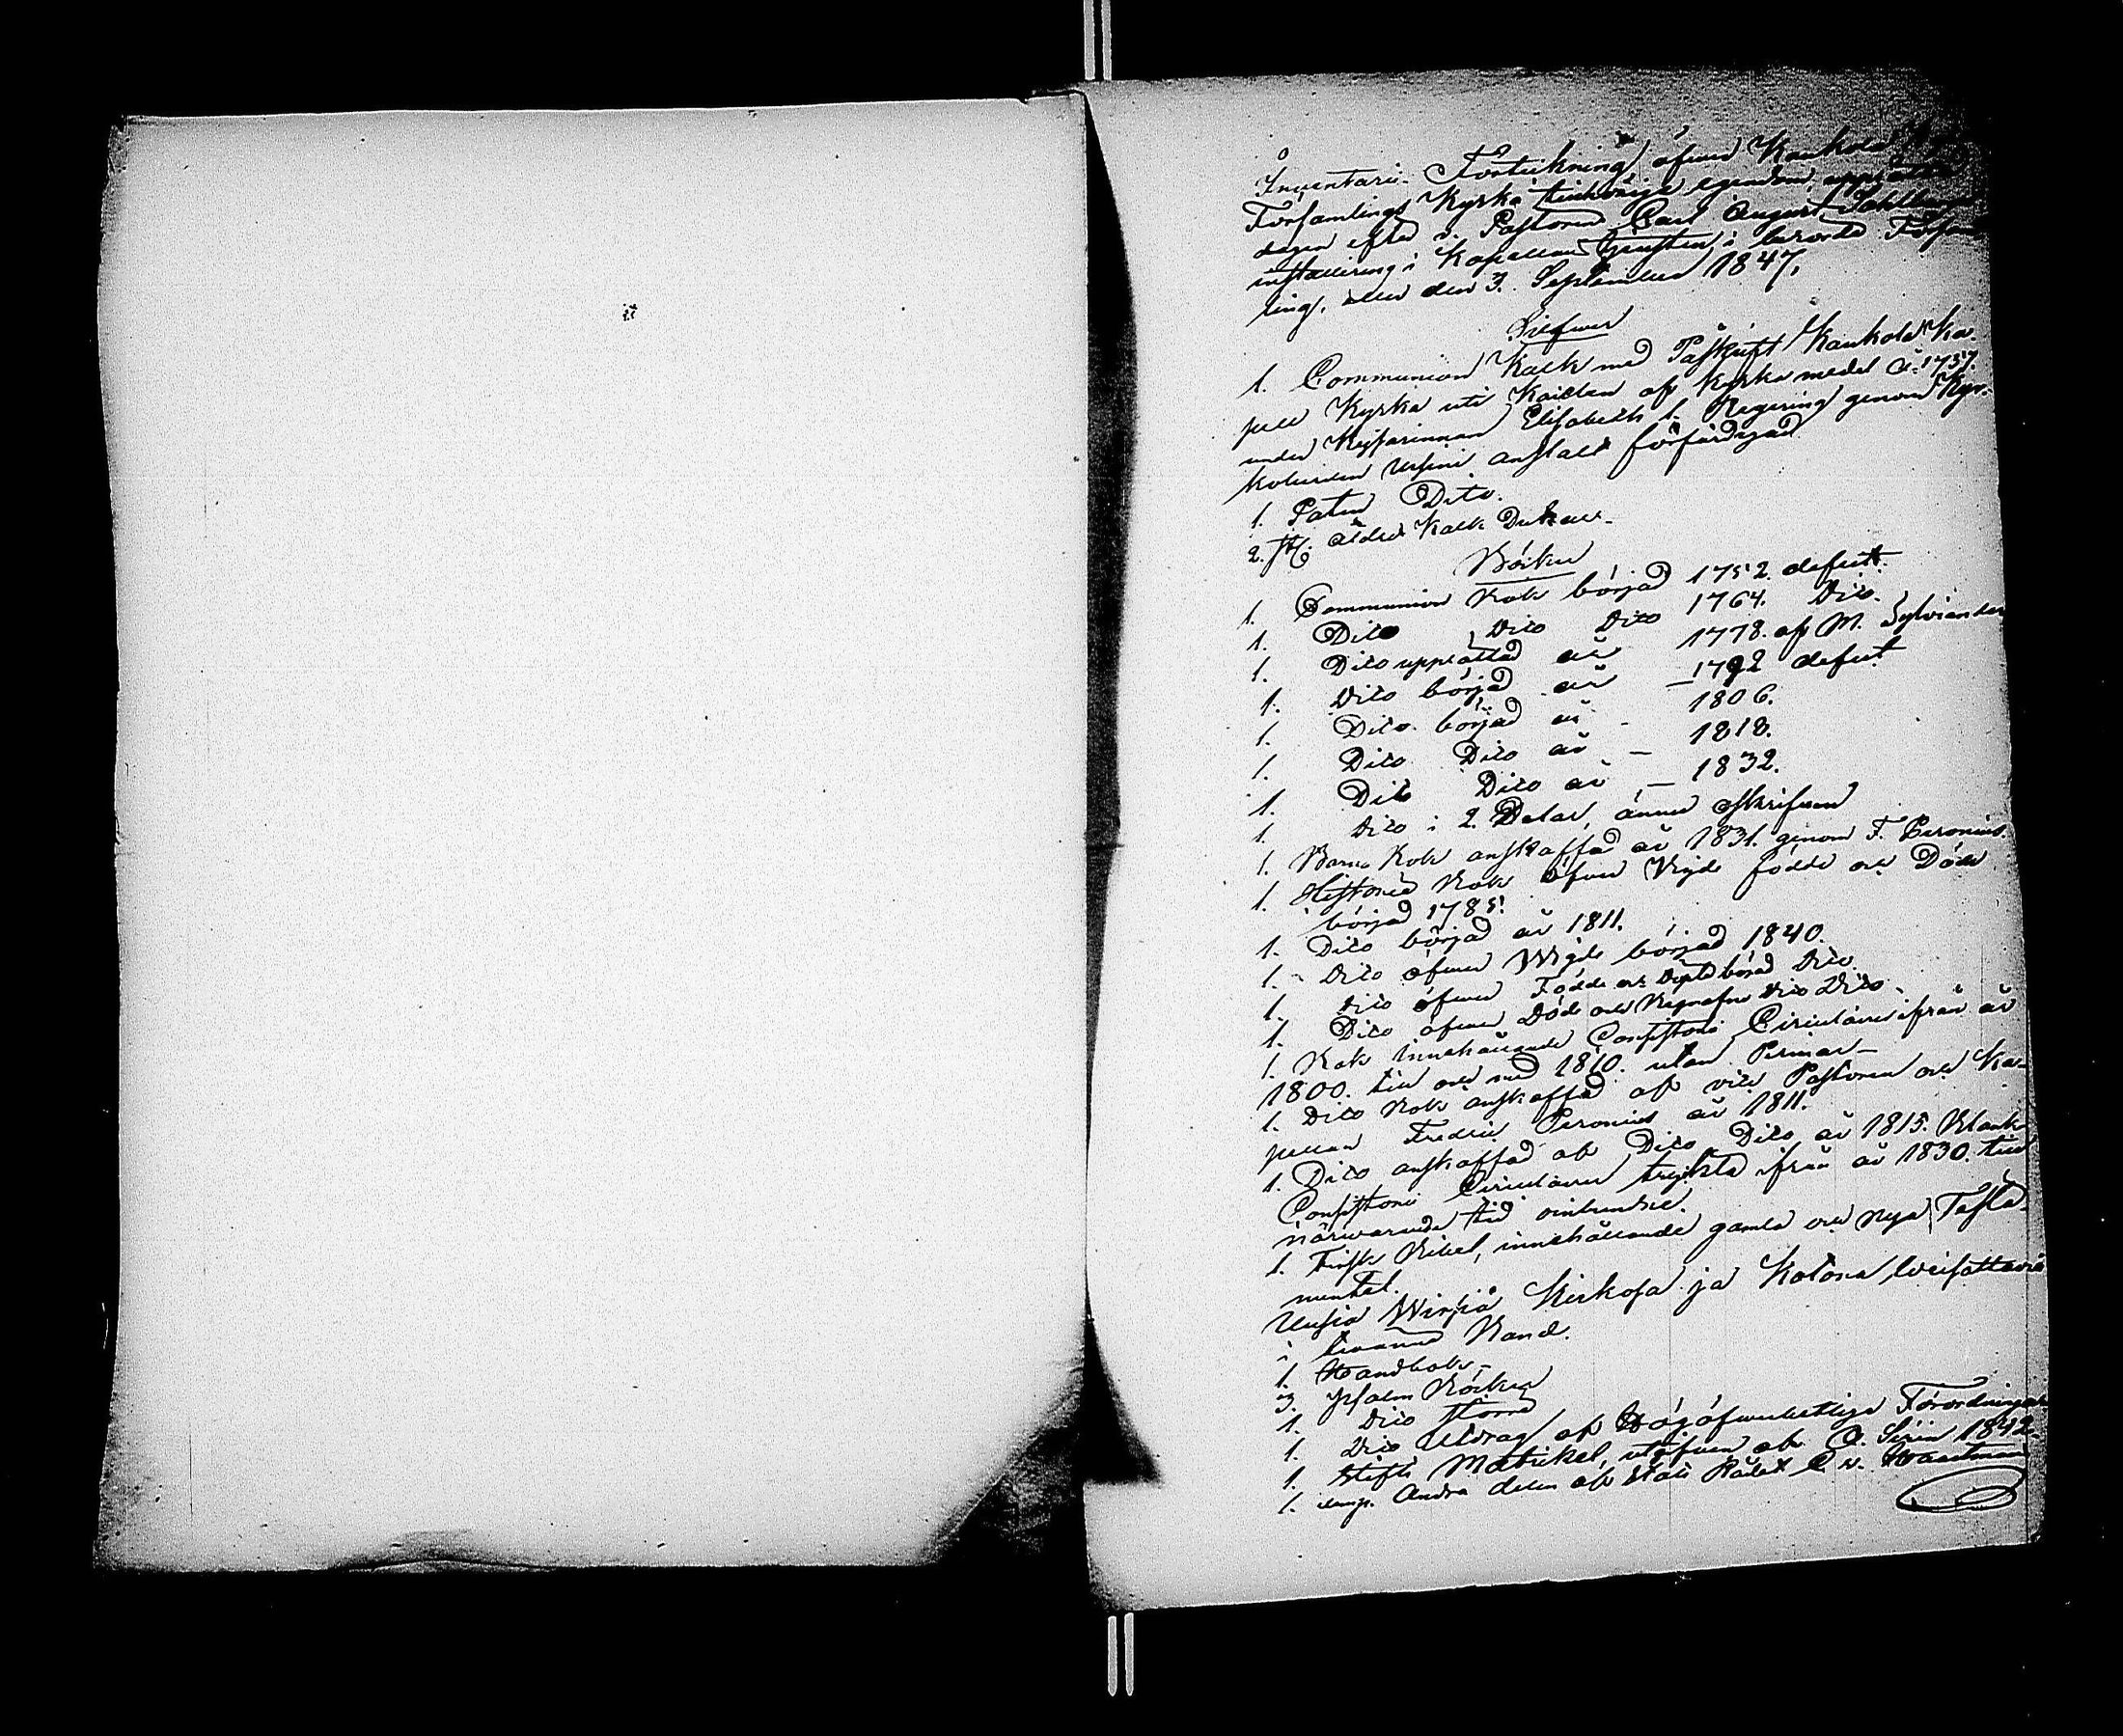 Inventarii Förtekning öfwer Kaukola
Församlings Kyrka tillhörige egendom, upprättad
dagen efter v. Pastoren Carl August Sahlbergs
installering i Kapellans tjensten i berörde Försam-
ling, eller den 3. September 1847.
Silfwer
1. Communion Kalk med Påskrift Kaukola Ka-
pell Kyrka uti Kexholm af Kyrko medel år 1757.
under Kejsarinnan Elisabeths 1. Regering genom Kyr-
koherden Ursini anstalt förfärdigad
1. Paten Dito.
2. st. äldre Kalk Dukar.
Böcker
1. Communion Bok börjad 1752. defect.
1. Dito Dito Dito 1764. Dito.
1. Dito upprättad år 1778. af M. Sylvander
1. Dito börjad år 1792 defect
1. Dito börjad år - 1806.
1. Dito Dito år - 1818.
1. Dito Dito år - 1832.
1. Dito i 2. Delar, ännu oskrifwen
1. Barna Bok anskaffad år 1831. genom F. Peronius.
1. Historie Bok öfwer Vigde födde och Döde
börjad 1785.
1. Dito börjad år 1811.
1. Dito öfwer Wigde börjad 1840.
1. Dito öfwer Födde och Döpte börjad Dito.
1. Dito öfwer Döde och Begrafne Dito Dito.
1. Bok innehållande Consistorii Circulairer ifrån år
1800. till och med 1810. utan Permar-
1. Dito Bok anskaffad af vice Pastoren och Ka-
pellan Fredric Peronius år 1811.
1. Dito anskaffad af Dito Dito år 1815. Blank
Consistorii Circulairer tryckta ifrån år 1830. till
närwarande tid oinbundne.
1. Finsk Bibel, innehållande gamla och nya Testa-
mentet.
Uusia Wirsiä Kirkosa ja Kotona weisattavia
i linne Band.
1. Handbok-
3. Psalm Böcker
1. Dito större
1. Dito Utdrag af Högöfwerhetliga Förordningar
1. Stifts Matrikel, utgifwen af A. Sirén 1842.
1. exmp. Andra delen af Stats Rådet C. v.